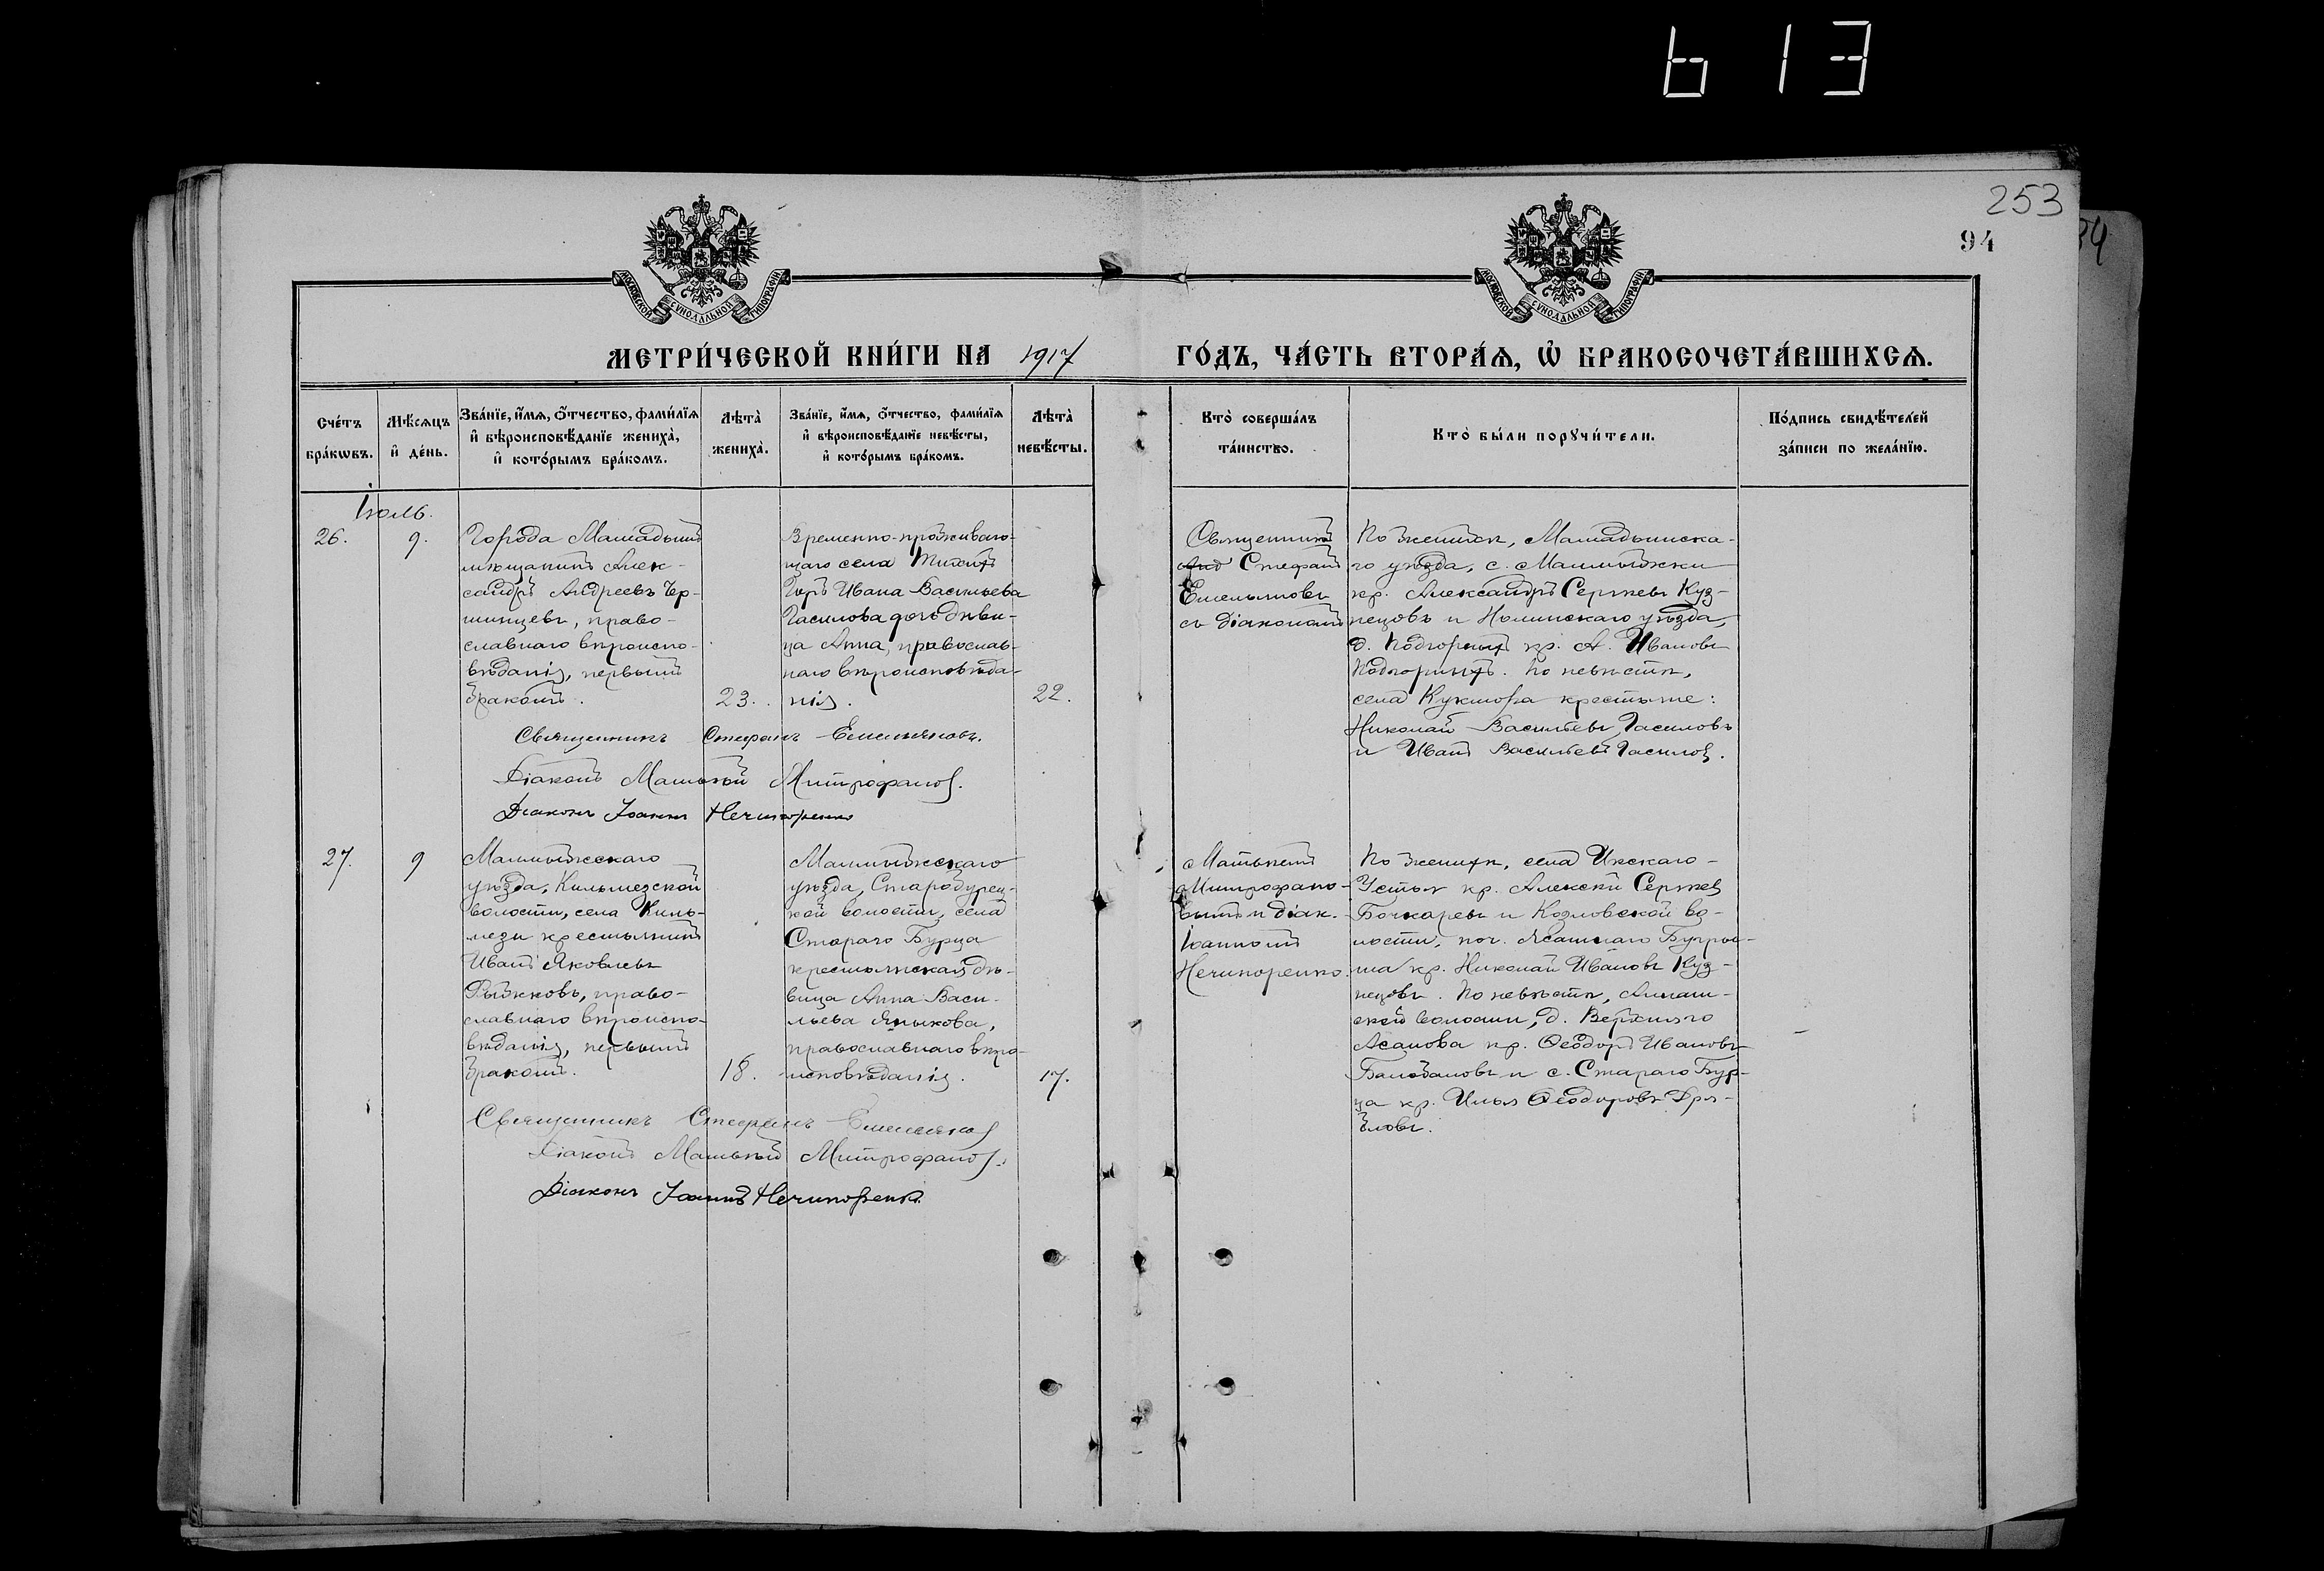 613
253
94
МОСКОВСКОЙ СѴНОДАЛЬНОЙ ТИПОГРАФІИ
МОСКОВСКОЙ СѴНОДАЛЬНОЙ ТИПОГРАФІИ
МЕТРИ́ЧЕСКОЙ КНИ́ГИ НА 1917 ГО́ДЪ, ЧА́СТЬ ВТОРА́Ѧ, Ѽ БРАКОСОЧЕТА́ВШИХСѦ.
Сче́тъ бра́кѡвъ.
Мѣ́сѧцъ и҆ де́нь.
Зва́нїе, и҆́мѧ, ѻ҆́тчество, фами́лїѧ и҆ вѣроисповѣ́данїе жениха̀, и҆ кото́рымъ бра́комъ.
Лѣта̀ жениха̀.
Зва́нїе, и҆́мѧ, ѻ҆́тчество, фами́лїѧ и҆ вѣроисповѣ́данїе невѣ́сты, и҆ кото́рымъ бра́комъ.
Лѣта̀ невѣ́сты.
Кто̀ соверша́лъ та́инство.
Кто̀ бы́ли порꙋчи́тели.
По́дпись свидѣ́телей за́писи по жела́нїю.
Іюль.
26.
9.
Города Мамадыша
мѣщанинъ Алек-
сандръ Андреевъ Чер-
шинцевъ, право-
славнаго вѣроиспо-
вѣданія, первымъ
бракомъ.
23.
Временно-проживаю-
щаго села
Ивана Васильева
Гасилова дочь дѣви-
ца Анна, православ-
наго вѣроисповѣда-
нія.
22.
Священникъ
Стефанъ
Емельяновъ
съ діакономъ
По женихѣ, Мамадышска-
го уѣзда, с. Малмыжки
кр. Александръ Сергѣевъ Куз-
нецовъ и Нолинскаго уѣзда,
д. Подгорныхъ кр. А. Ивановъ
Подгорныхъ. По невѣстѣ,
села Кукмора крестьяне:
Николай Васильевъ Гасиловъ
и Иванъ Васильевъ Гасиловъ.
Священникъ Стефанъ Емельяновъ.
Діаконъ Матвѣй Митрофановъ.
Діаконъ Іоаннъ Нечипоренко
27.
9
Малмыжскаго
уѣзда, Кильмезской
волости, села Киль-
мези крестьянинъ
Иванъ Яковлевъ
Рыжковъ, право-
славнаго вѣроиспо-
вѣданія, первымъ
бракомъ.
18.
Малмыжскаго
уѣзда, Старобурец-
кой волости, села
Стараго Бурца
крестьянская дѣ-
вица Анна Васи-
льева Языкова,
православнаго вѣро-
исповѣданія.
17.
Матвѣемъ
Митрофано-
вымъ и діак.
Іоанномъ
Нечипоренко.
По женихѣ, села Икскаго-
Устья кр. Алексѣй Сергѣевъ
Бочкаревъ и Козловской во-
лости, поч. Ясашнаго
кр. Николай Ивановъ Куз-
нецовъ. По невѣстѣ,
ской волости, д. Верхняго
Асанова кр. Ѳеодоръ Ивановъ
Балобановъ и с. Стараго Бур-
ца кр. Илья Ѳеодоровъ Дря-
хловъ.
Священникъ Стефанъ Емельяновъ
Діаконъ Матвѣй Митрофановъ.
Діаконъ Іоаннъ Нечипоренко.